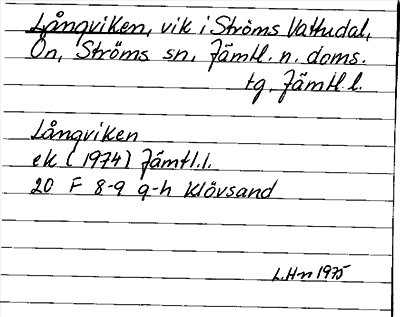 Långviken, vik i Ströms Vattudal,
Ön, Ströms sn, Jämtl. n. doms.
tg, Jämtl.l.
Långviken
ek (1974) Jämtl.l.
20 F 8-9 g-h Klövsand
L.H-n 1975